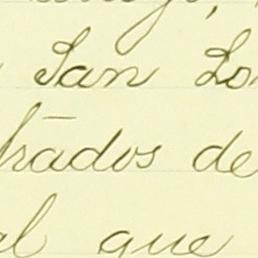 San Lo
rados de
al que